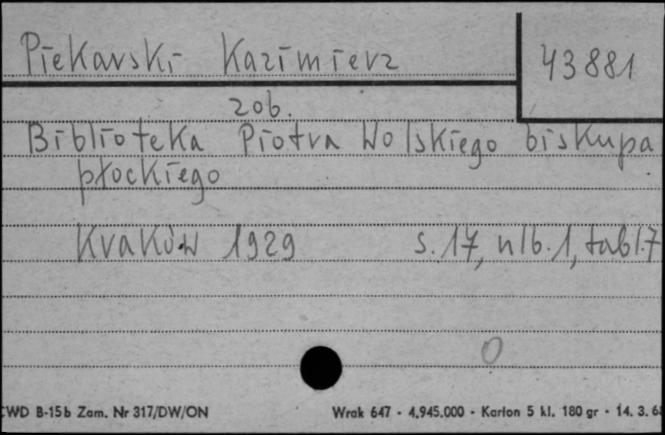 Piekarski Kazimierz
43881
zob.
Biblioteka Piotra Wolskiego biskupa
płockiego
Kraków 1929 s. 17, nlb. 1, tabl. 7
0
CWD B-15b Zam. Nr 317/DW/ON Wrak 647 - 4.945.000 - Karton 5 kl. 180 gr - 14. 3. 68